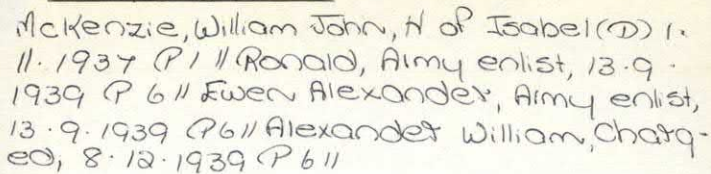 McKenzie, William John, H of Isabel (D) 1.
11.1937 P 1 // Ronald, Army enlist, 13.9.
1939 P 6 // Ewen Alexander, Army enlist,
13.9.1939 P6 // Alexander William, Charg-
ed, 8.12.1939 P 6 //